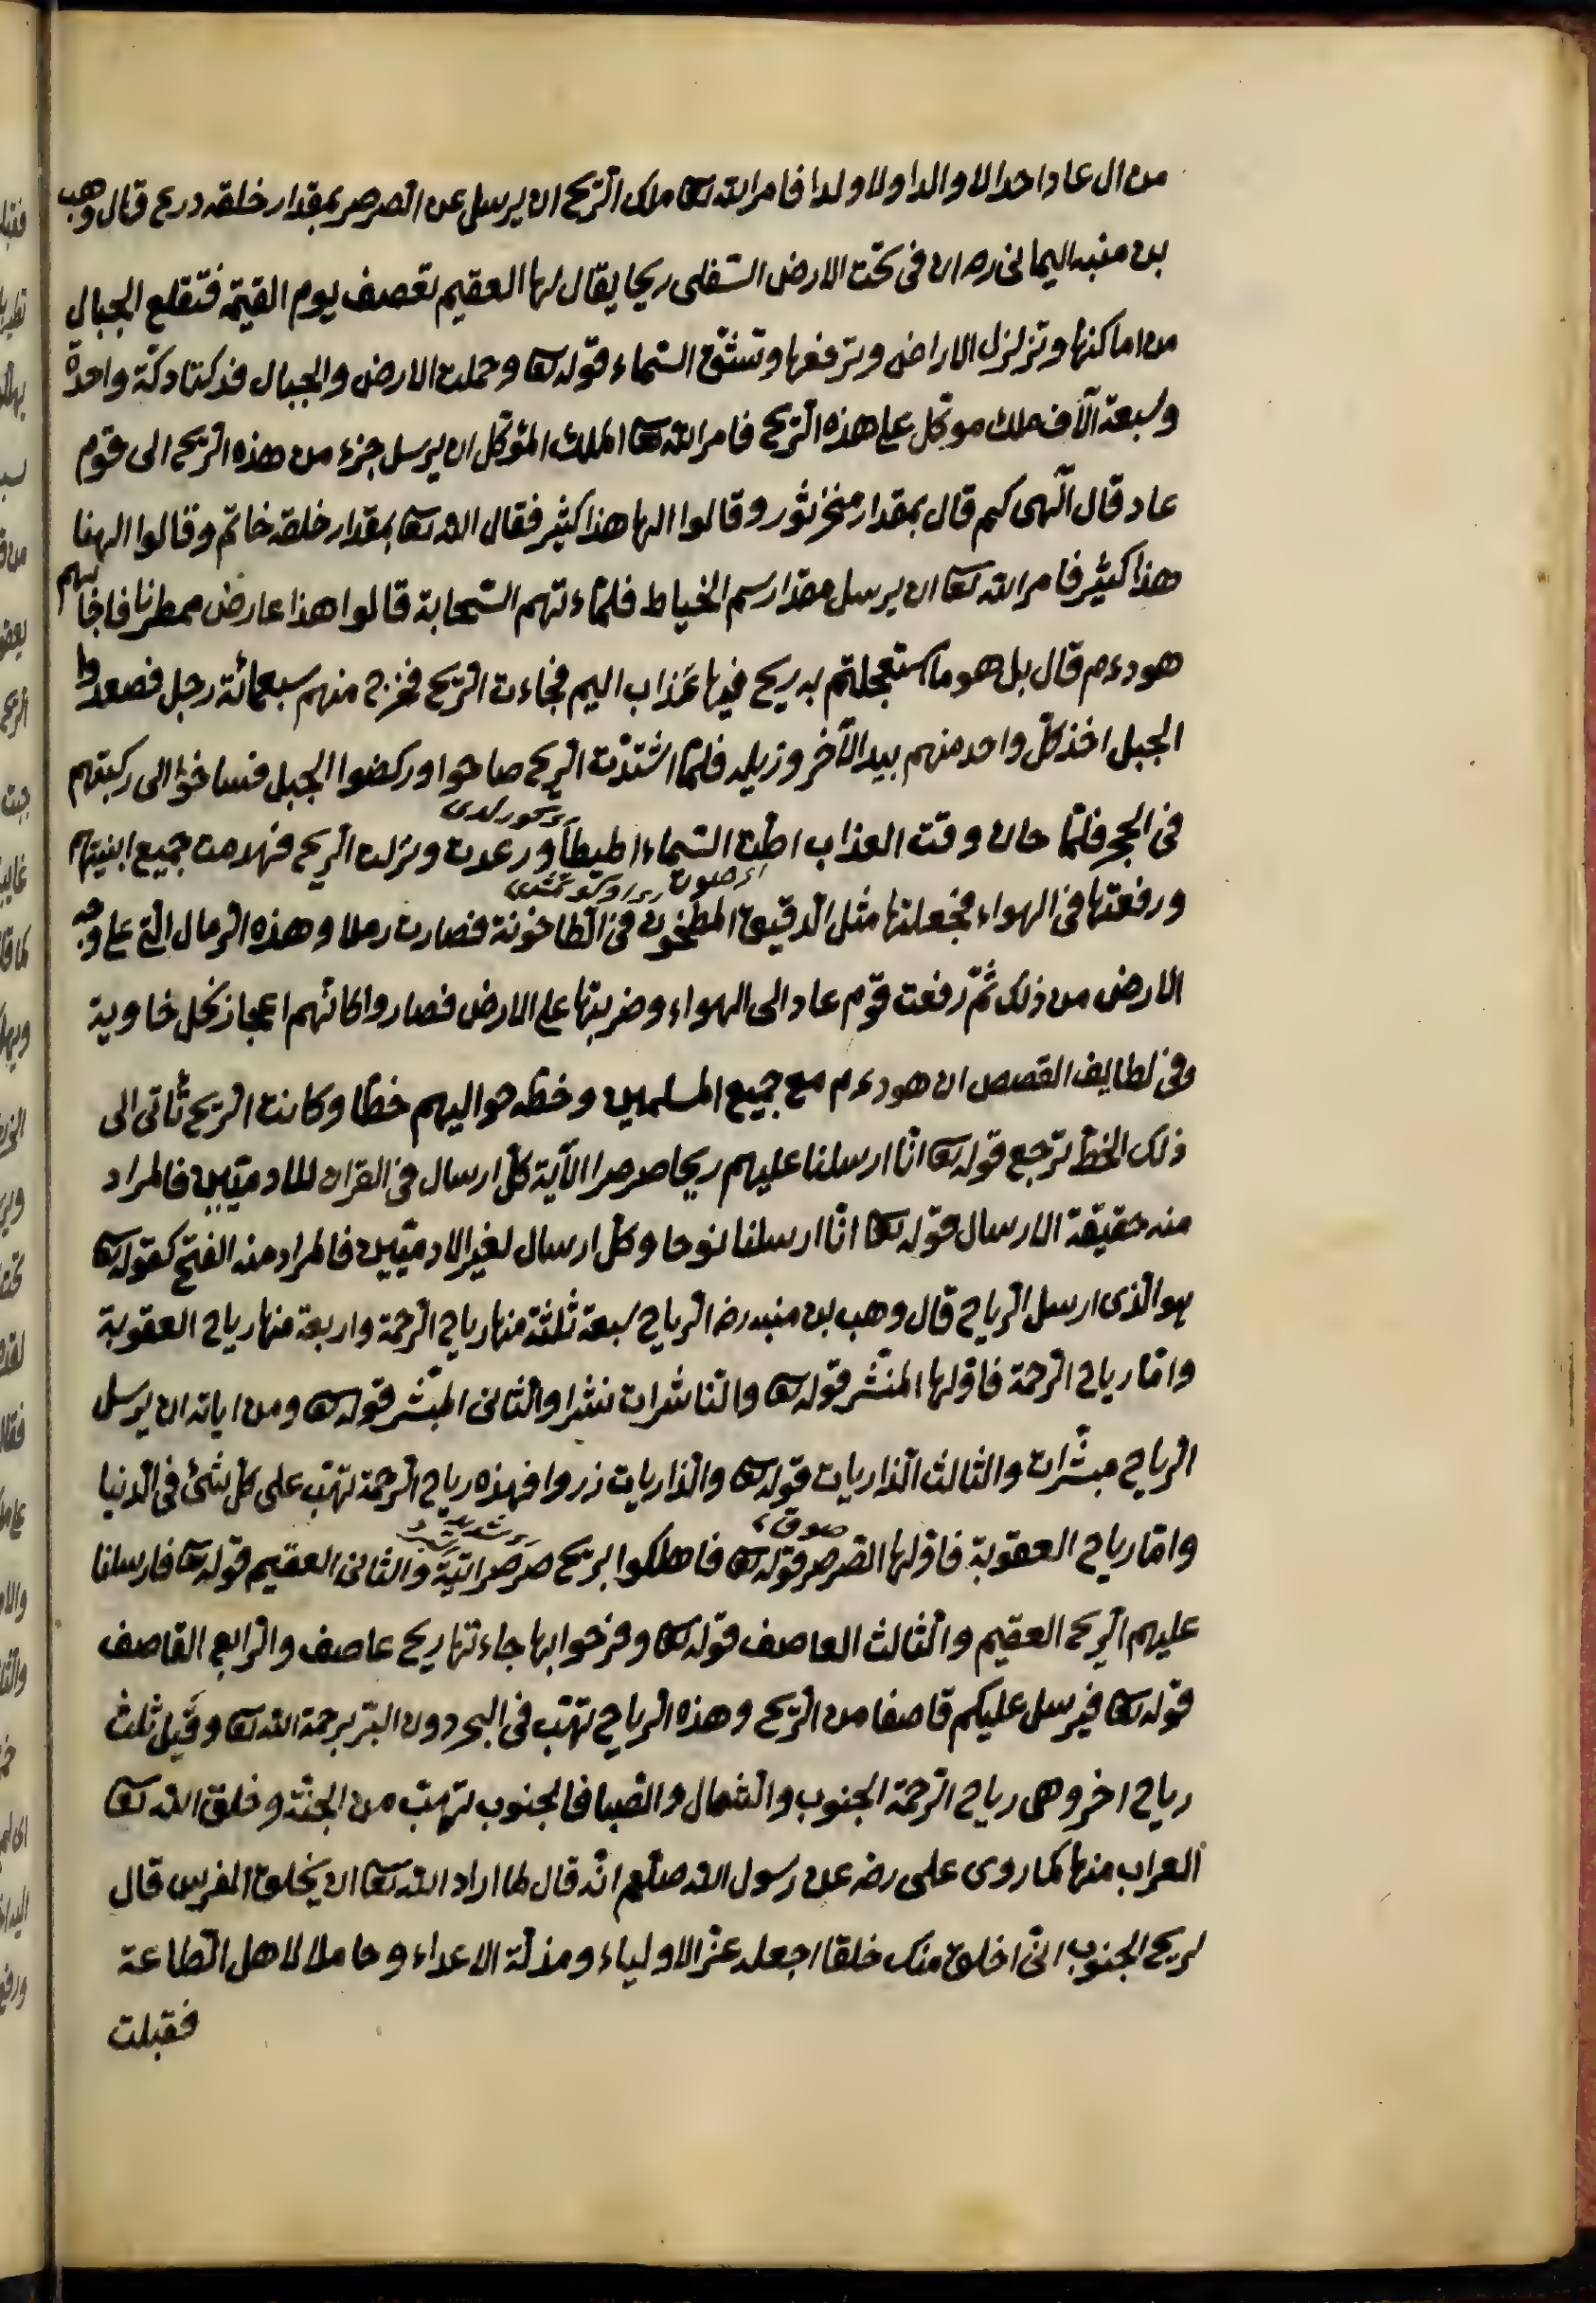 من ال عاد احدا لا والدا ولا ولدا فامر الله تعا ملك الرّيح ان يرسل عن الصرصر بمقدار خلقه درع قال وهب
بن منبه اليمانى ره ان فى تحت الارض السّفلى ريحا يقال لها العقيم تعصف يوم القيمة فتقلع الجبال
من اماكنها وتزلزل الاراضى وترفعها وتشقّ السّماء قوله تعا وحملت الارض والجبال فدكتا دكّة واحدة
وسبعة آلاف ملك موكّل على هذه الرّيح فامر الله تعا الملك المؤكّل ان يرسل جزء من هذه الرّيح الى قوم
عاد قال الٓهى كم قال بمقدار منخر ثور وقالوا الها هذا كثير فقال الله تعا بمقدار خلقه خاتم وقالوا الهنا
هذا كثير فامر الله تعا ان يرسل مقدار سم الخياط فلمّاءتهم السّحابة قالوا هذا عارض ممطرنا فاجابهم
هود ءم قال بل هو ما استعجلتم به ريح فيها عَذاب اليم فجاءت الرّيح فخرج منهم سبعمائة رجل فصعدوا
الجبل اخذ كلّ واحد منهم بيد الآخر وزيله فلمّا اشتدّت الرّيح صاحوا وركضوا الجبل فساخوا الى ركبتهم
فى الحجر فلمّا حان وقت العذاب اطّت السّماء اطيطاً ورعدت ونزلت الرّيح فهدمت جميع ابنيتهم
ورفعتها فى الهواء فجعلتها مثل الدّقيق المطحون فى الطّاحونة فصارت رملا وهذه الرّمال الّتى على وجه
الارض من ذلك ثمّ رفعت قوم عاد الى الهواء وضربتها على الارض فصاروا كانّهم اعجاز نخل خاوية
وفى لطايف القصص ان هود ءم مع جميع المسلمين وخطّ حواليهم خطّا وكانت الرّيح تأتى الى
ذلك الخطّ ترجع قوله تعا انّا ارسلنا عليهم ريحا صرصرا الآية كلّ ارسال فى القران للادميّين فالمراد
منه حقيقة الارسال قوله تعا انّا ارسلنا نوحا وكلّ ارسال لغير الادميّين فالمراد منه الفتح كقوله تعا
هو الّذى ارسل الرّياح قال وهب بن منبه رضه الرّياح سبعة ثلثة منها رياح الرّحمة واربعة منها رياح العقوبة
وامّا رياح الرّحمة فاوّلها المنشّر قوله تعا والنّاشرات نشرا والثّانى المبشّر قوله تعا ومن اياته ان يرسل
الرّياح مبشّرات والثالث الذّاريات قوله تعا والذّاريات ذروا فهذه رياح الرّحمة تهبّ على كلّ شئ فى الدّنيا
وامّا رياح العقوبة فاوّلها الصّرصر قوله تعا فاهلكوا بريح صرصر اتية والثّانى العقيم قوله تعا فارسلنا
عليهم الرّيح العقيم والثّالث العاصف قوله تعا وفرحوا بها جاءتها ريح عاصف والرّابع القاصف
قوله تعا فيرسل عليكم قاصفا من الرّيح وهذه الرّياح تهبّ فى البحر دون البرّ برحمة الله تعا وقيل ثلث
رياح اخر وهى رياح الرّحمة الجنوب والشّمال والصّبا فالجنوب تهبّ من الجنّة وخلق الله تعا
العراب منها كما روى على رضه عن رسول الله صلعم انّه قال لما اراد الله تعا ان يخلق الفرس قال
لريح الجنوب انّى اخلق منك خلقا اجعله عزّ الاولياء ومذلّة الاعداء وحاملا لاهل الطّاعة
فقبلت